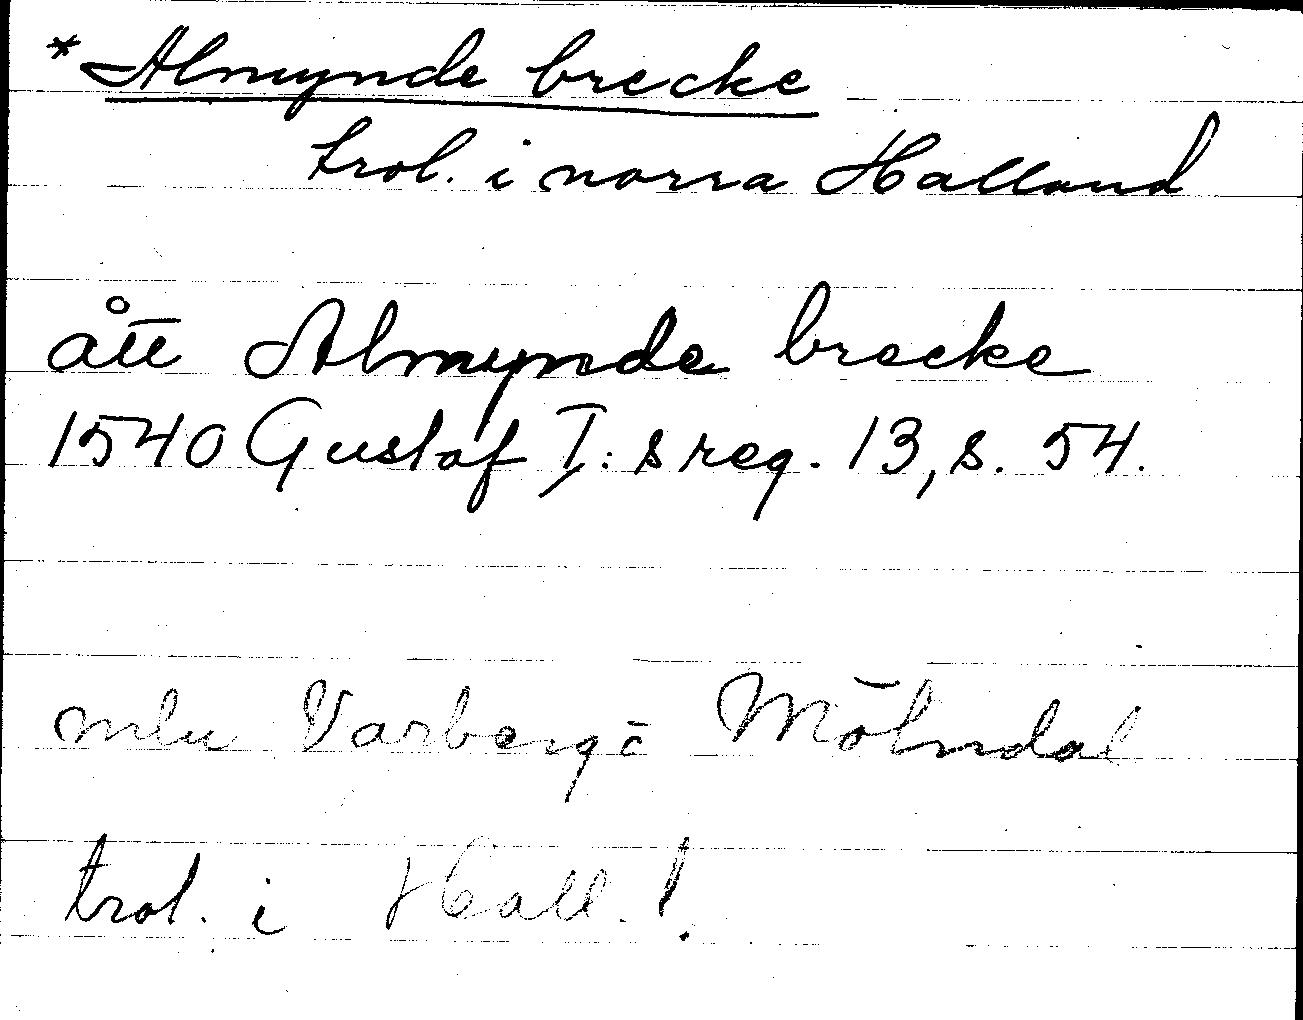 *Almynde brecke
trol. i norra Halland
ått Almynde brecke
1540 Gustof I: s reg. 13, s. 54.
mln Varberg o Mölndal
trol. i Hall.!